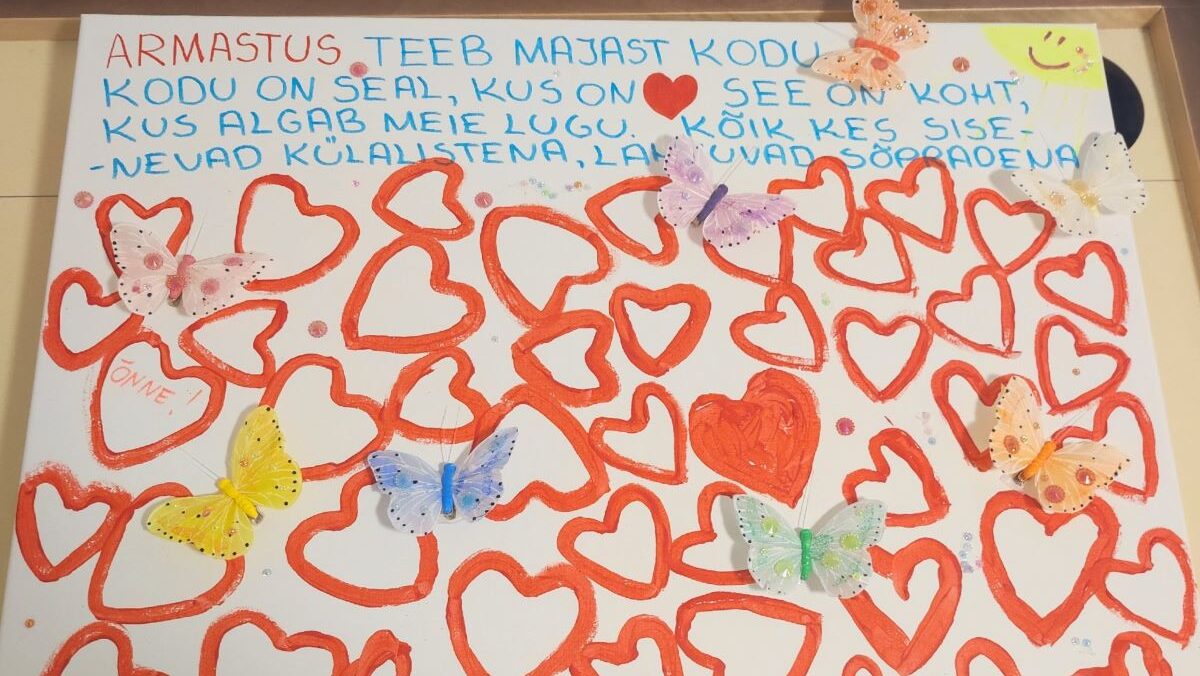 ARMASTUS TEEB MAJAST KODU
KODU ON SEAL, KUS ON ❤ SEE ON KOHT,
KUS ALGAB MEIE LUGU. KÕIK KES SISE-
-NEVAD KÜLALISTENA, LAHKUVAD SÕPRADENA
ÕNNE,!